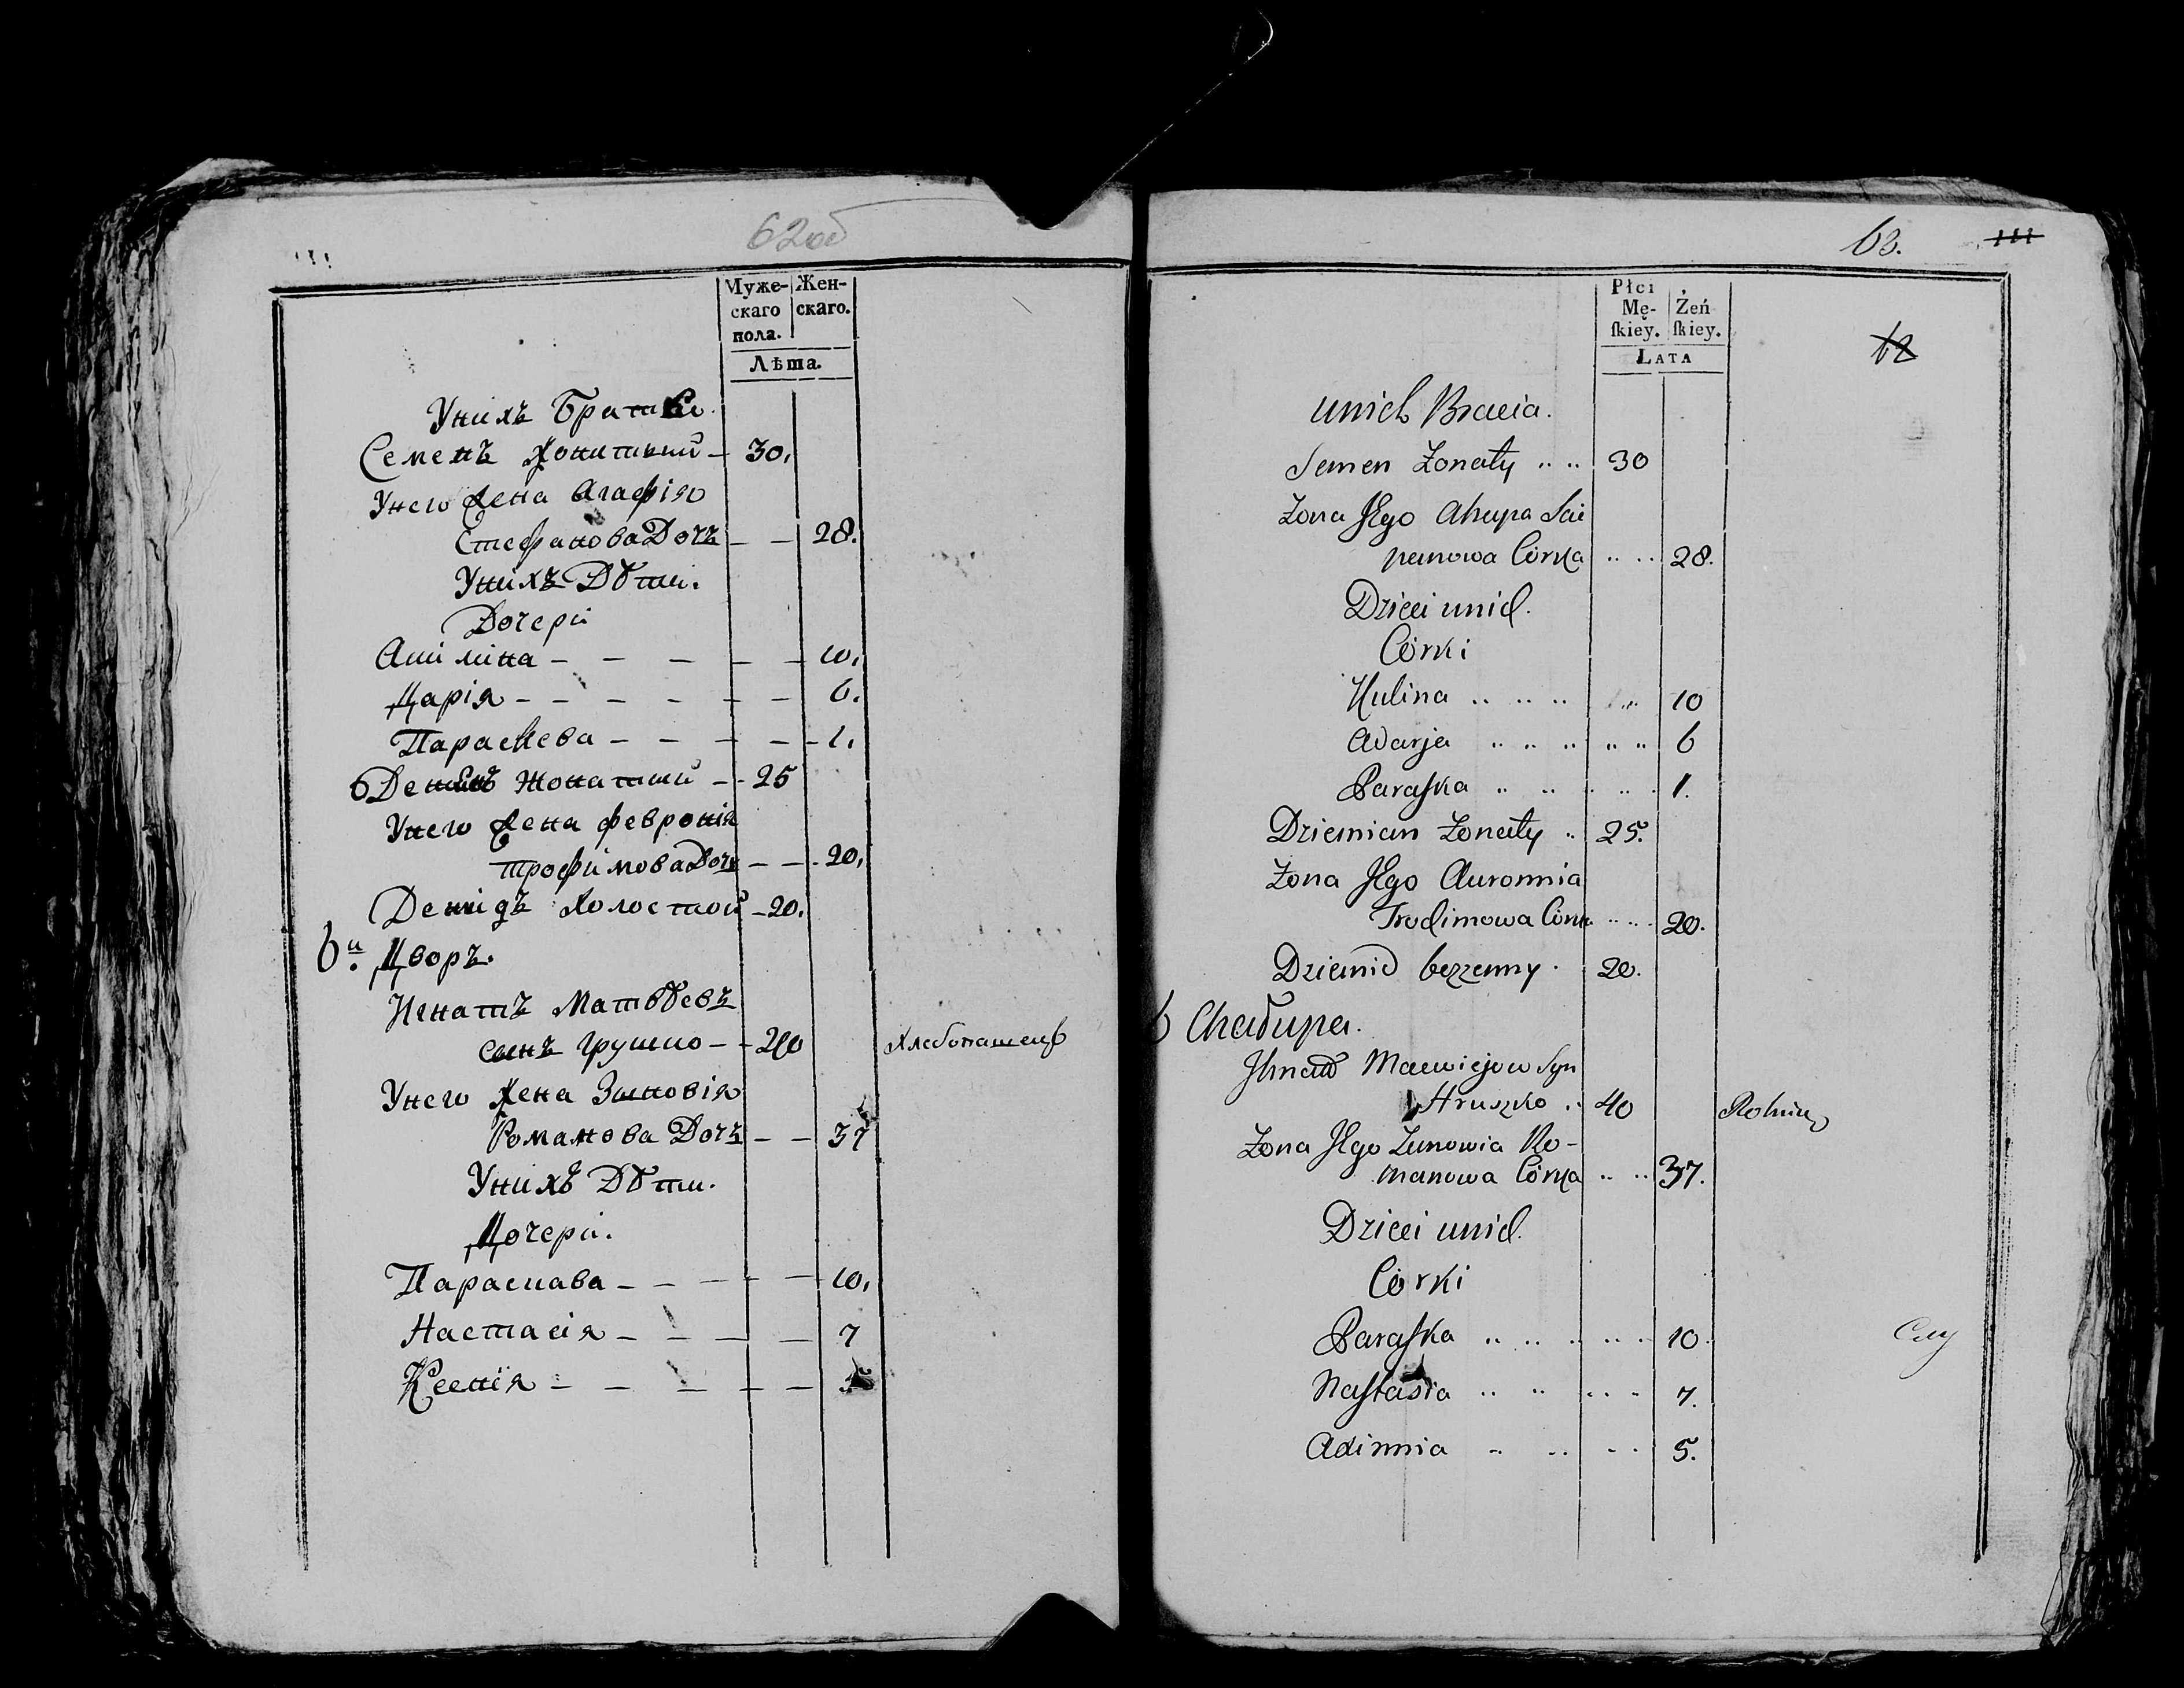 62об
Муже-
скаго
пола.
Жен-
скаго.
Лѣта.
Унихъ Братья
Семенъ Жонатый – 30.
Унего Жена Агафія
Стефанова Дочъ – – 28.
Унихъ Дѣти.
Дочери
Акилина – – – – – 10.
Дарія – – – – – – 6.
Параскева – – – – – 1.
Деміянъ Жонатый – – 25
Унего Жена Февронія
Трофимова Дочъ – – – 20.
Демидъ Холостой – 20.
6й. Дворъ.
Игнатъ Матвѣевъ
сынъ Грушко – – 40 Хлебопашецъ
Унего Жена Зиновія
Романова Дочъ – – 37
Унихъ Дѣти.
Дочери.
Параскава – – – – – 10.
Настасія – – – – 7
Ксенія – – – – – 5
63.
Płci
Mę-
ſkiey.
Żeń
ſkiey.
Lata
62
unich Bracia.
Semen Zonaty .. .. 30
Zona Jego Ahapa Sci
panowa Córka .. .. 28.
Dzieci unich.
Córki
Kulina .. .. .. .. 10
Adarja .. .. .. .. .. 6
Paraſka .. .. .. .. 1.
Dziemian Zonaty .. 25.
Zona Jego Auronnia
Trochimowa Córk .. .. 20.
Dziemid bezzenny . 20.
6 Chałupa.
Jhnat Maciwiejow Syn
Hruszko .. 40 Rolnik
Zona Jego Zenowia Ro-
manowa Córka .. .. 37.
Dzieci unich.
Córki
Paraſka .. .. .. .. . 10.
Naſtasia .. .. .. . 7.
Axinnia .. .. .. 5.